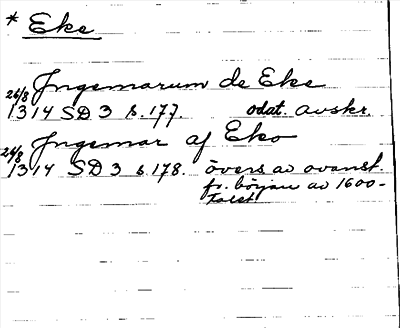 * Eke
Ingemarum de Eke
26/8 1314 SD 3 s. 177. odat. avskr.
Ingemar af Eko
26/8 1314 SD 3 s. 178. övers av ovanst.
fr. början av 1600-
talet